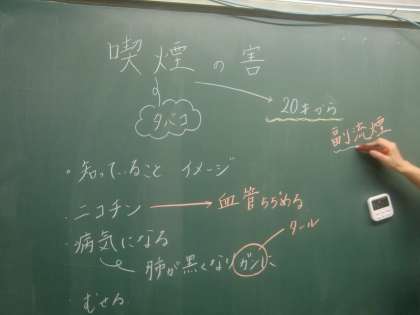 喫煙の害
タバコ
20才から
副流煙
・知っていること イメージ
・ニコチン → 血管ちぢめる
・病気になる
タール
肺が黒くなり ガンに
・むせる